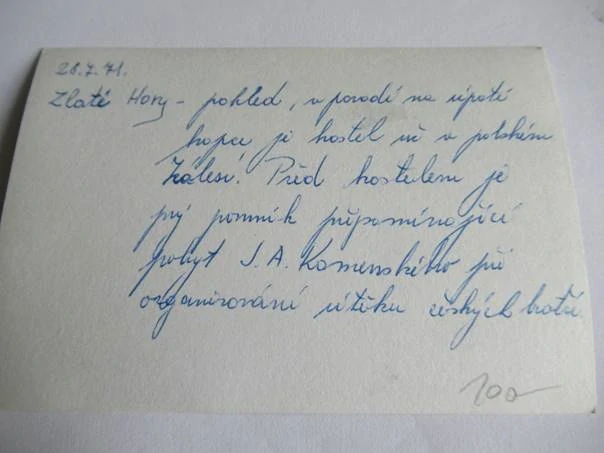 28.7.71.
Zlaté Hory - pohled, v pozadí na úpatí
kopce je kostel už v polském
Zálesí. Před kostelem je
prý pomník připomínající
pobyt J. A. Komenského při
organizování útěku českých bratří.
100